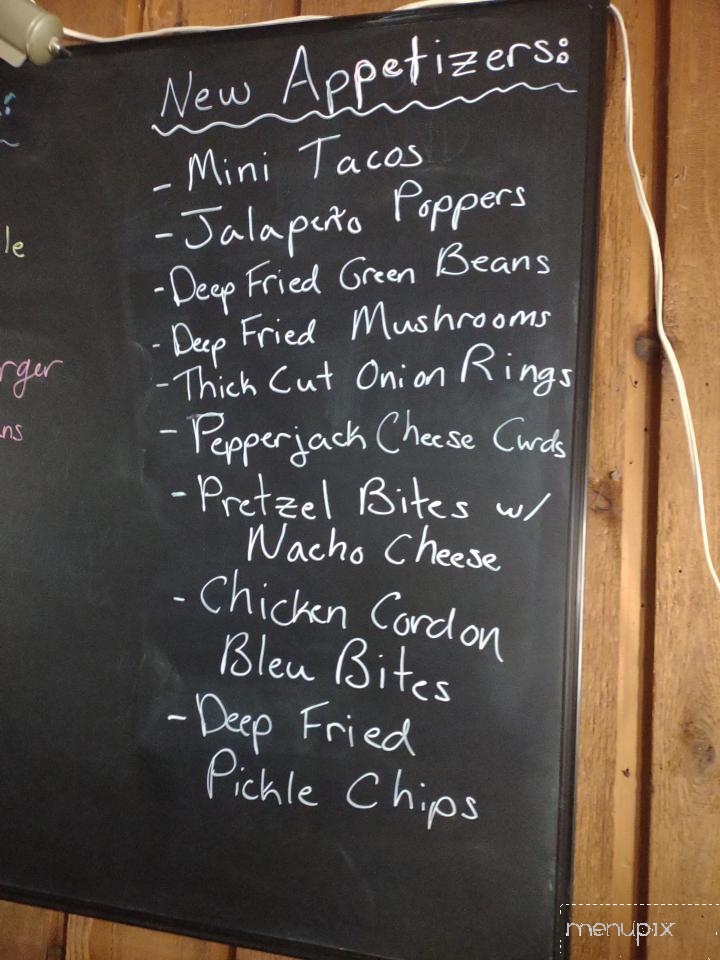 New Appetizers:
- Mini Tacos
- Jalapeño Poppers
- Deep Fried Green Beans
- Deep Fried Mushrooms
- Thick Cut Onion Rings
- Pepperjack Cheese Curds
- Pretzel Bites w/
Nacho Cheese
- Chicken Cordon
Bleu Bites
- Deep Fried
Pickle Chips
le
rger
ns
menupix